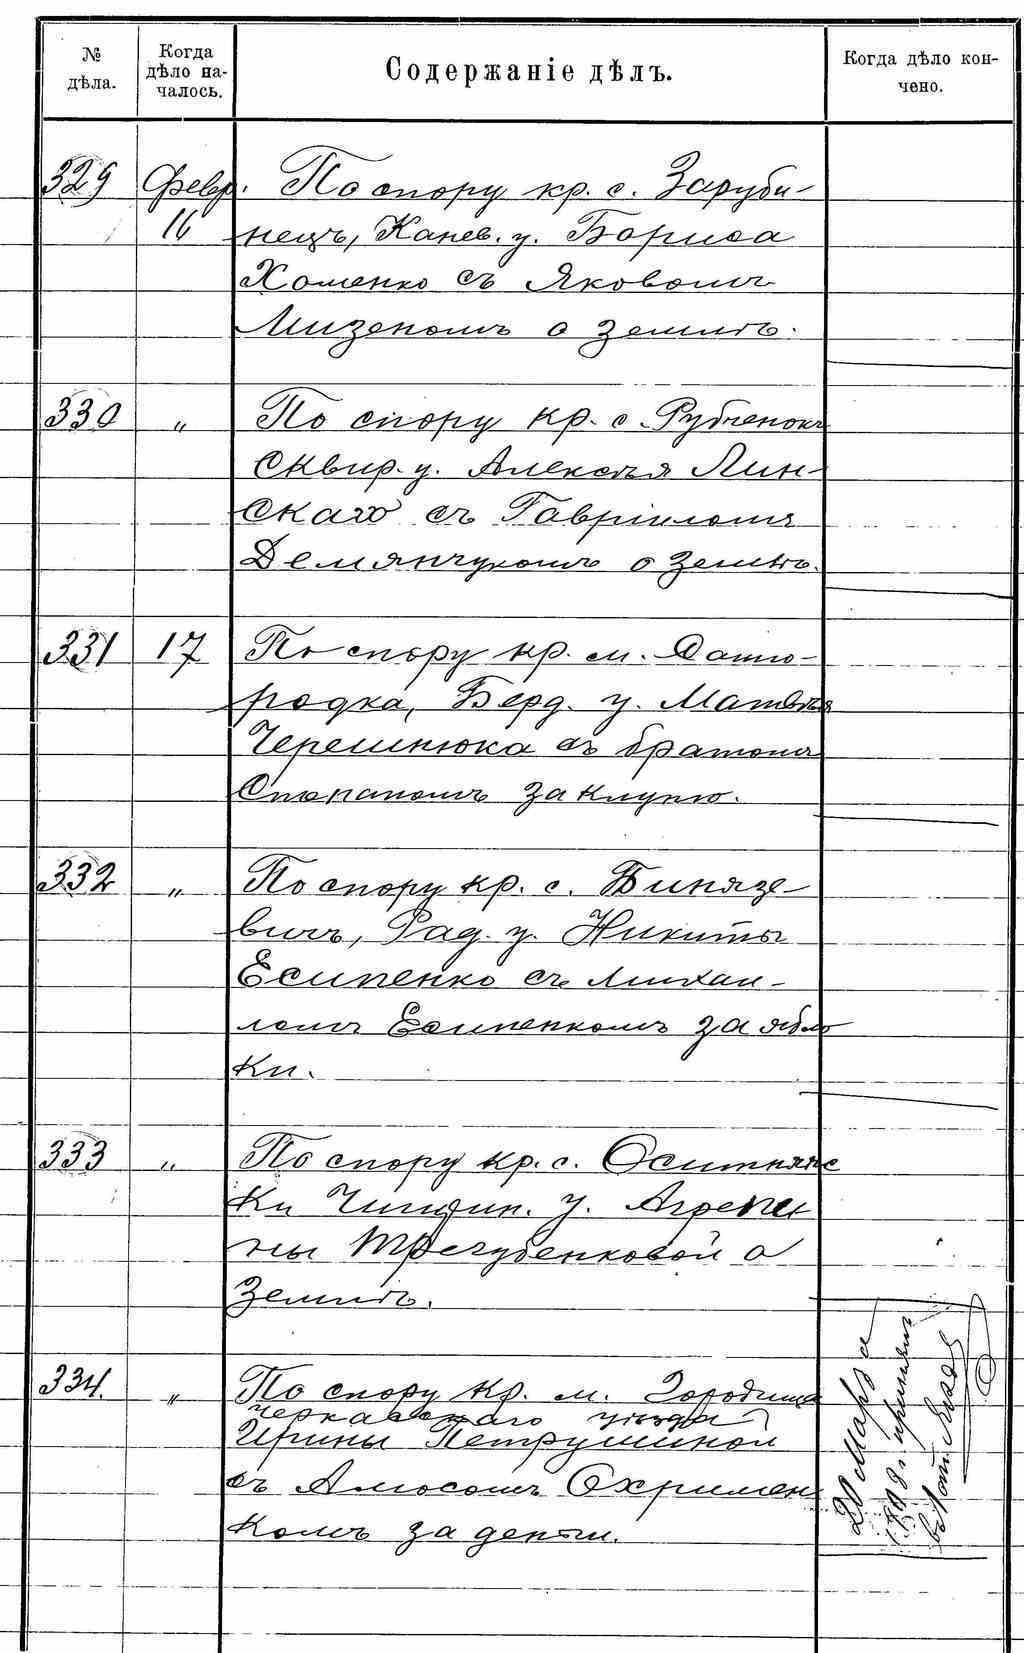 № дѣла.
Когда дѣло началось.
Содержаніе дѣлъ.
Когда дѣло кончено.
329 Февр. По спору кр. с. Заруби-
16 нецъ, Канев. у. Бориса
Хоменко съ Яковомъ
Мизеномъ о землѣ.
330 „ По спору кр. с. Рубченокъ
Сквир. у. Алексѣя Лин-
скаго съ Гавріиломъ
Демянчукомъ о землѣ.
331 17 По спору кр. м.
родка, Берд. у. Матвѣя
Черешнюка съ братомъ
Степаномъ за клуню.
332 „ По спору кр. с.
вичъ, Рад. у. Никиты
Есипенко съ Михаи-
ломъ Есипенкомъ за ябло
ки.
333 „ По спору кр. с. Оситняж
ки Чигирин. у. Агрепи
ны Трегубенковой о
Землѣ.
334. „ По спору кр. м. Городища
Черкасскаго уѣзда
Ирины Петрушиной
съ Амосомъ Охримен
комъ за деньги.
20 Марта
1898 г. принялъ